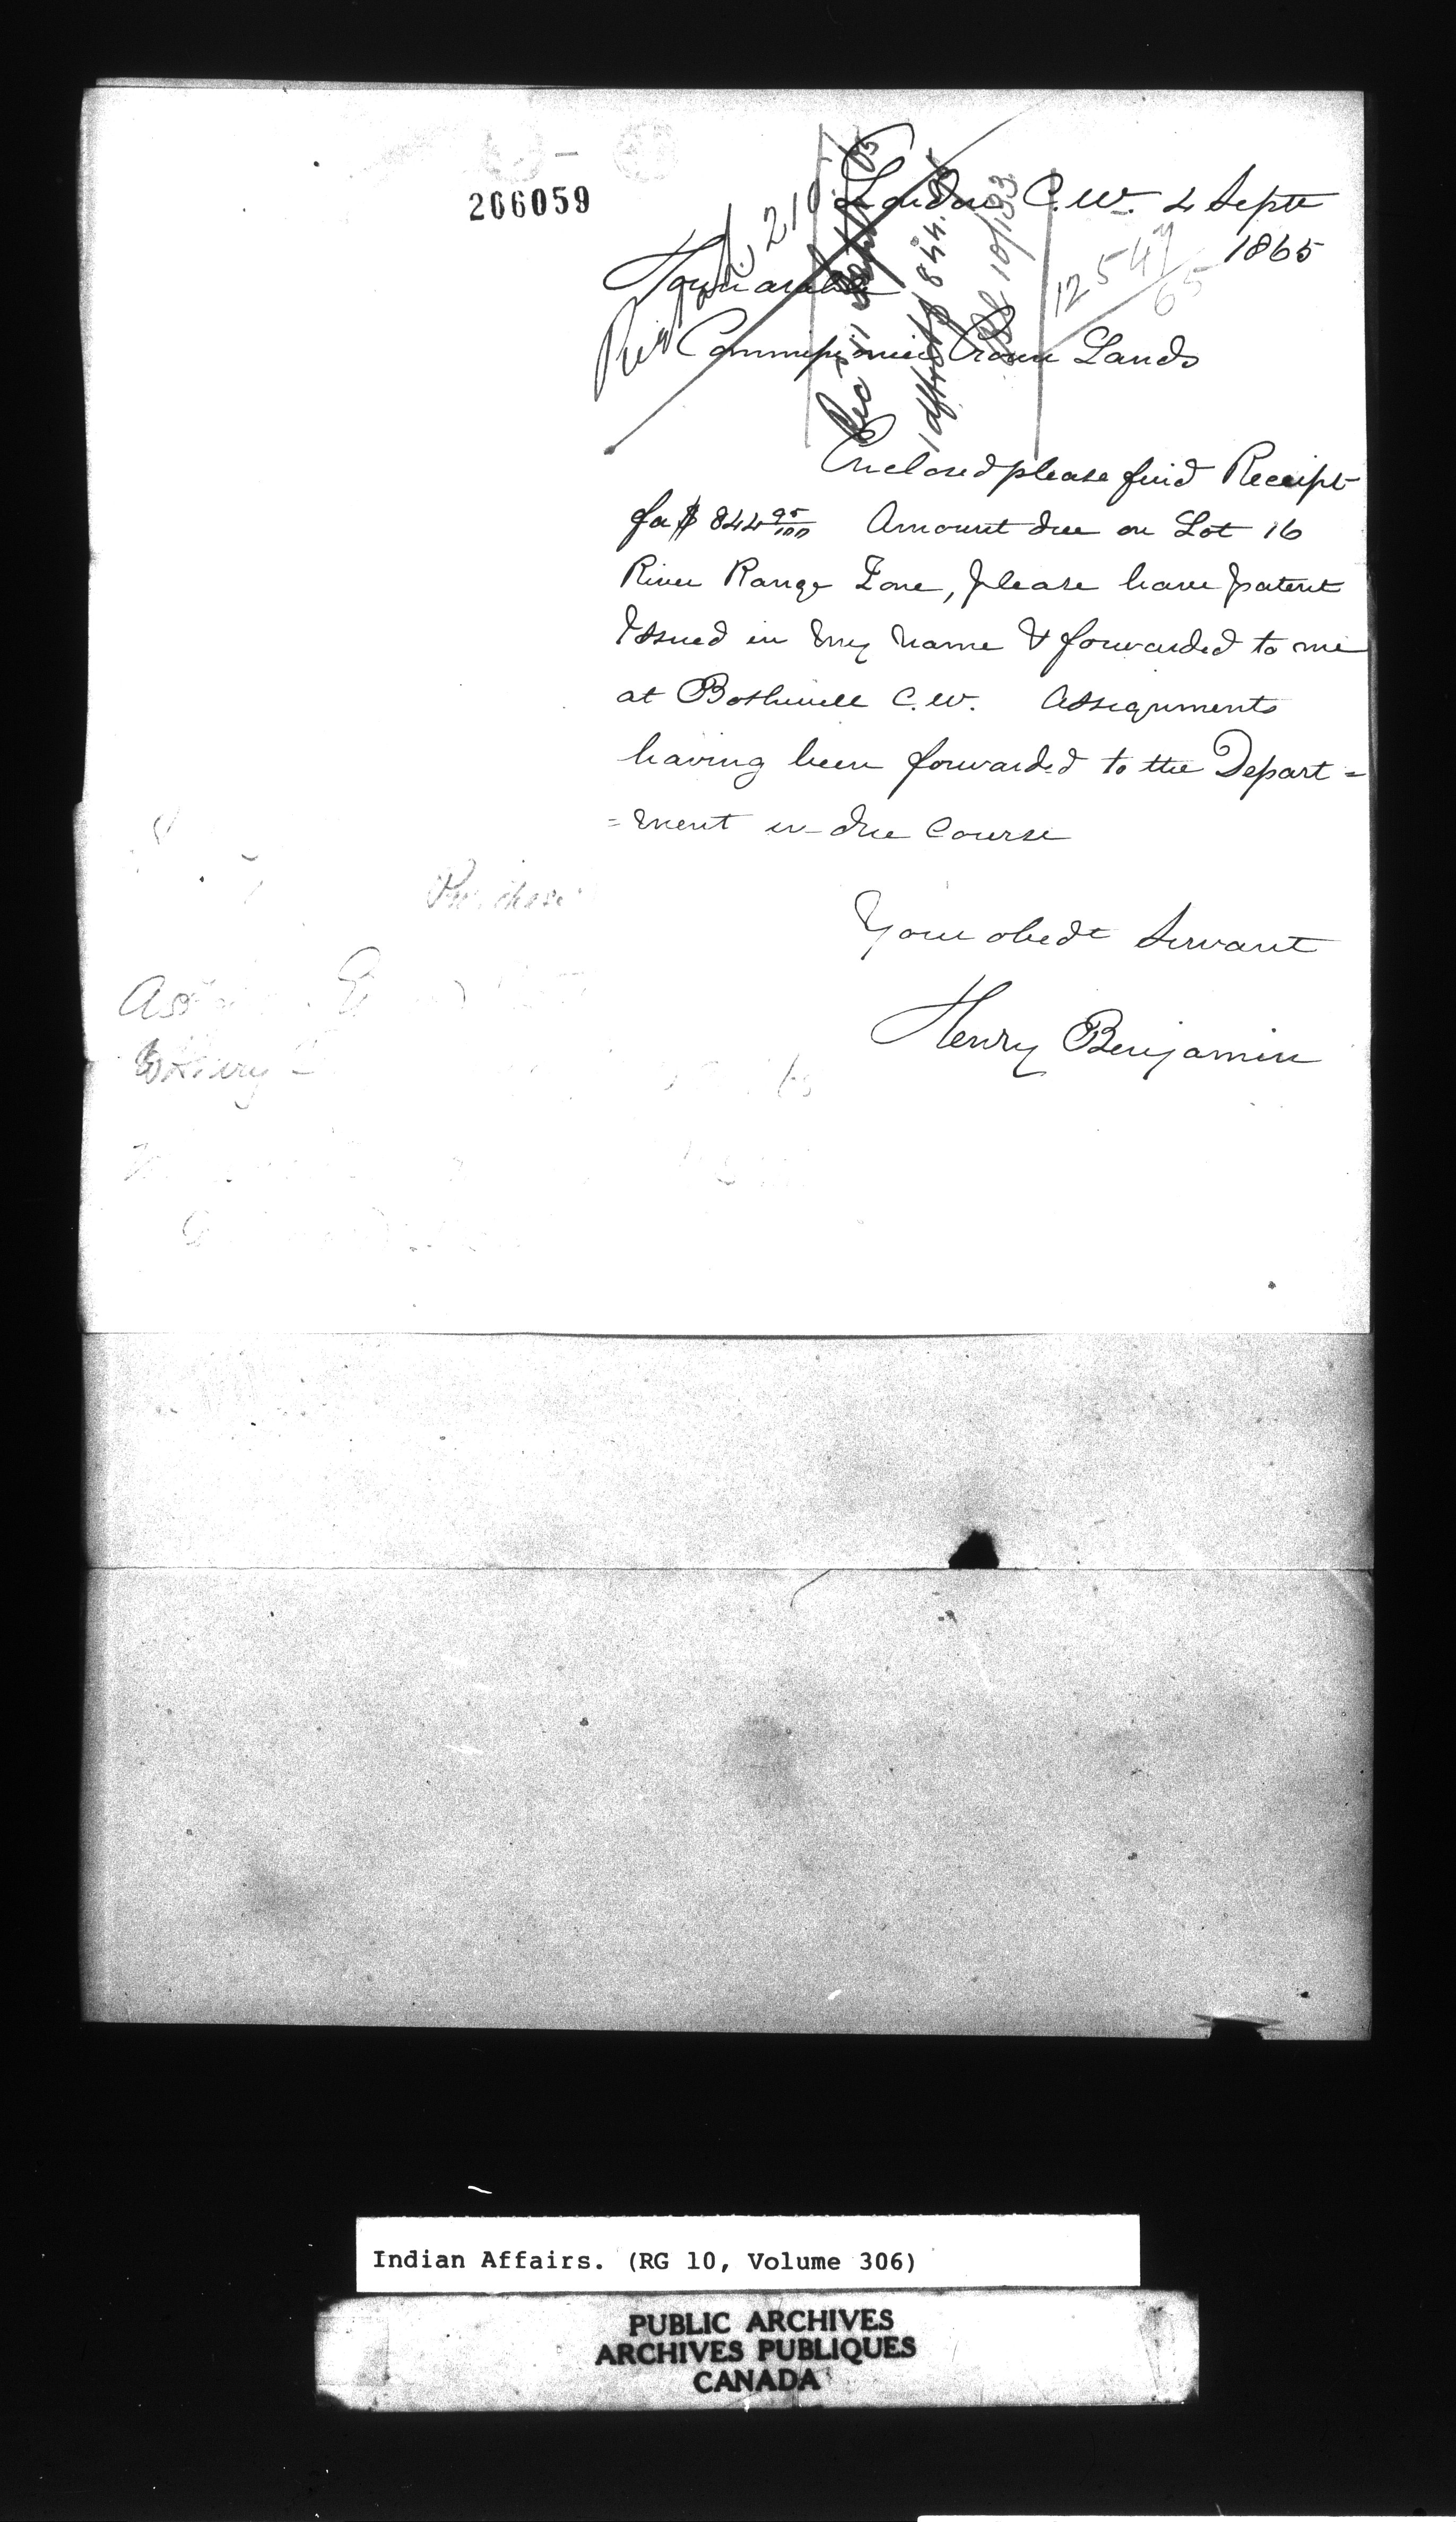 206059
London C.W. 4 Septr
1865
Honorable
Commissioner Crown Lands
210
Rec'd 11 Sept 65
1 dft for $844.95
10/133
12547/65
Enclosed please find Receipt
for $844 95/100 Amount due on Lot 16
River Range Zone, please have patent
Issued in my name & forwarded to me
at Bothwell C.W. Assignments
having been forwarded to the Depart=
=ment in due course
Your obedt Servant
Henry Benjamin
Purchase
Indian Affairs. (RG 10, Volume 306)
PUBLIC ARCHIVES
ARCHIVES PUBLIQUES
CANADA